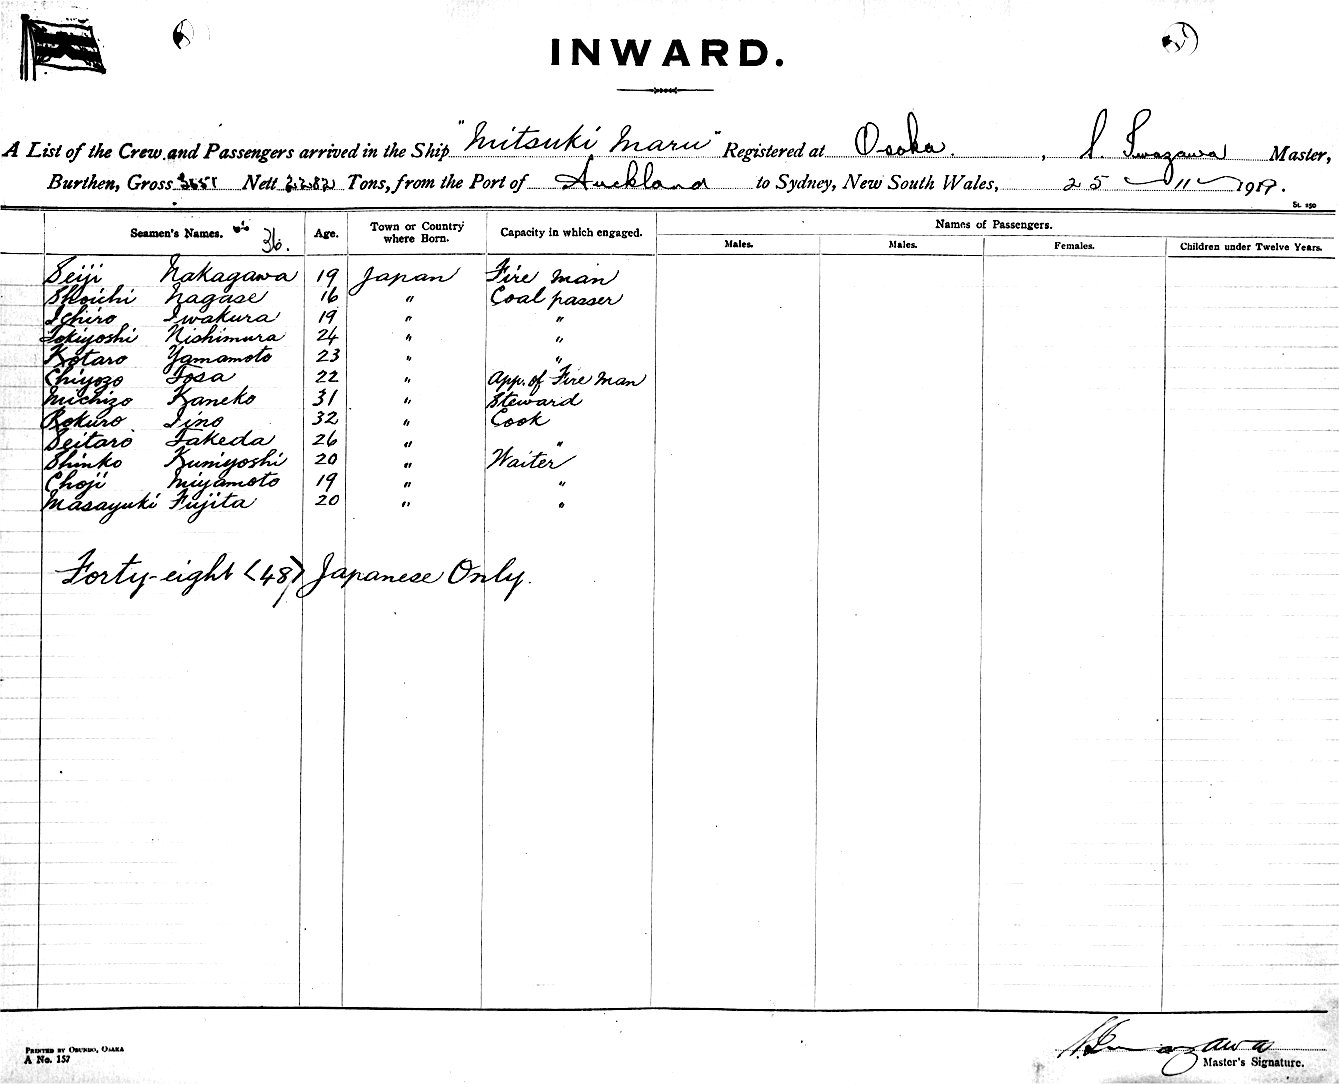 INWARD.
A List of the Crew and Passengers arrived in the Ship "Mitsuki Maru" Registered at Osaka. , S. Iwazawa Master,
Burthen, Gross 3651 Nett 2282 Tons, from the Port of Auckland to Sydney, New South Wales, 25 11 1919.
St. 150
Seamen's Names. 36. Age. Town or Country where Born. Capacity in which engaged. Names of Passengers.
Males. Males. Females. Children under Twelve Years.
Seiji Nakagawa 19 Japan Fire man
Shoichi Nagase 16 " Coal passer
Ichiro Iwakura 19 " "
Tokiyoshi Nishimura 24 " "
Kotaro Yamamoto 23 " "
Chiyozo Tosa 22 " App. of Fire man
Michizo Kaneko 31 " Steward
Rokuro Iino 32 " Cook
Seitaro Takeda 26 " "
Shinko Kuniyoshi 20 " Waiter
Choji Miyamoto 19 " "
Masayuki Fujita 20 " "
Forty-eight (48) Japanese Only.
PRINTED BY OBUNDO, OSAKA
A No. 157
S. Iwazawa
Master's Signature.